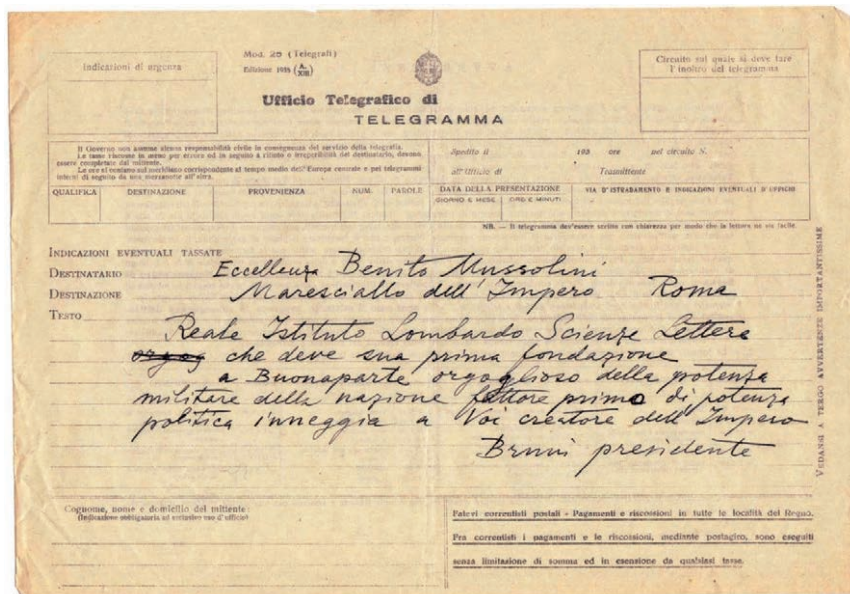 Indicazioni di urgenza
Mod. 25 (Telegrafi)
Edizione 1935 (A. XIII)
Circuito sul quale si deve fare
l'inoltro del telegramma
Ufficio Telegrafico di
TELEGRAMMA
Il Governo non assume alcuna responsabilità civile in conseguenza del servizio della telegrafia.
Le tasse riscosse in meno per errore od in seguito a rifiuto o irreperibilità del destinatario, devono
essere completate dal mittente.
Le ore si contano sul meridiano corrispondente al tempo medio dell'Europa centrale e pei telegrammi
interni di seguito da una mezzanotte all'altra.
Spedito il 193 ore pel circuito N.
all'Ufficio di Trasmittente
QUALIFICA DESTINAZIONE PROVENIENZA NUM. PAROLE DATA DELLA PRESENTAZIONE VIA D'ISTRADAMENTO E INDICAZIONI EVENTUALI D'UFFICIO
GIORNO E MESE ORE E MINUTI
NB. — Il telegramma dev'essere scritto con chiarezza per modo che la lettura ne sia facile.
INDICAZIONI EVENTUALI TASSATE
DESTINATARIO Eccellenza Benito Mussolini
DESTINAZIONE Maresciallo dell'Impero Roma
TESTO
Reale Istituto Lombardo Scienze Lettere
orgog che deve sua prima fondazione
a Buonaparte orgoglioso della potenza
militare della nazione fattore primo di potenza
politica inneggia a Voi creatore dell'Impero
Bruni presidente
VEDANSI A TERGO AVVERTENZE IMPORTANTISSIME
Cognome, nome e domicilio del mittente:
(Indicazione obbligatoria ad esclusivo uso d'ufficio)
Fatevi correntisti postali - Pagamenti e riscossioni in tutte le località del Regno.
Fra correntisti i pagamenti e le riscossioni, mediante postagiro, sono eseguiti
senza limitazione di somma ed in esenzione da qualsiasi tassa.